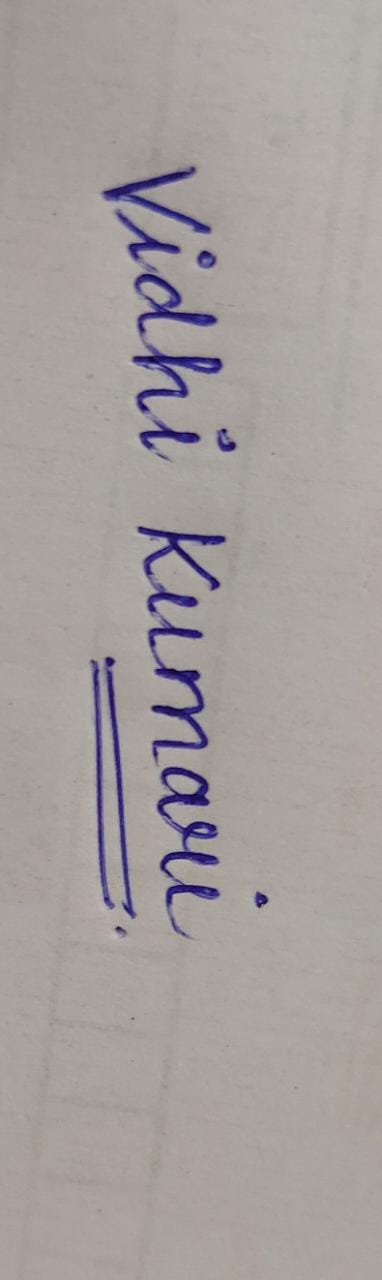 Vidhi Kumari